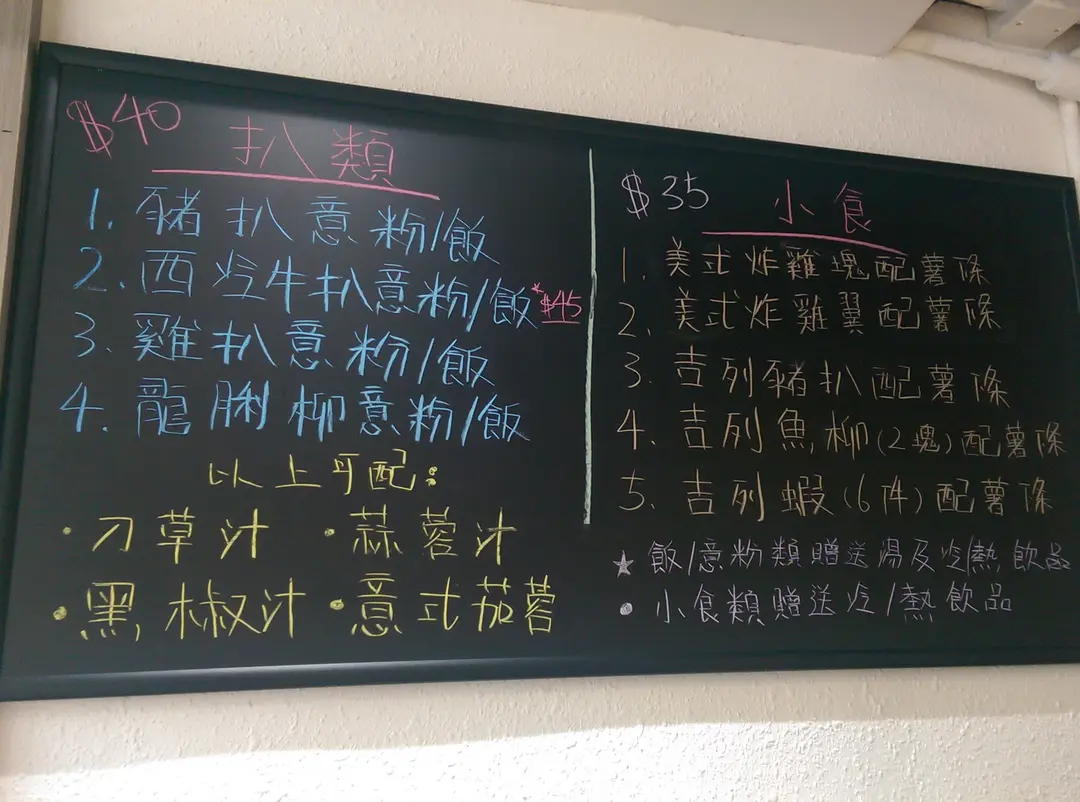 $40 扒類
1. 豬扒意粉/飯
2. 西冷牛扒意粉/飯 *$45
3. 雞扒意粉/飯
4. 龍脷柳意粉/飯
以上可配:
·刁草汁 ·蒜蓉汁
·黑椒汁 ·意式茄蓉
$35 小食
1. 美式炸雞塊配薯條
2. 美式炸雞翼配薯條
3. 吉列豬扒配薯條
4. 吉列魚柳(2塊)配薯條
5. 吉列蝦(6件)配薯條
★ 飯/意粉類贈送湯及冷/熱飲品
• 小食類贈送冷/熱飲品